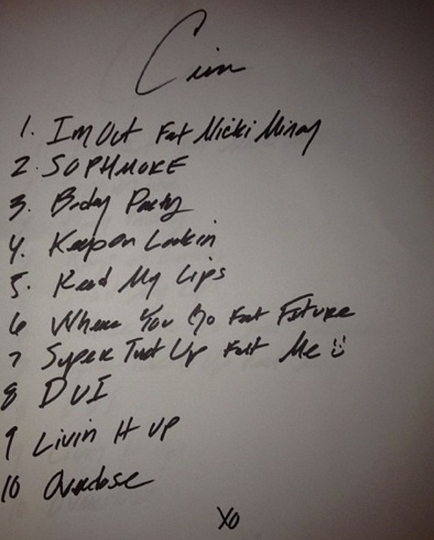 Ciara
1. Im Out Fat Nicki Minaj
2. SOPHMORE
3. Body Party
4. Keep on Lookin
5. Read My Lips
6 Where You Go Fat Future
7 Super Turt Up Fat Me
8 DUI
9 Livin It up
10 Overdose
XO